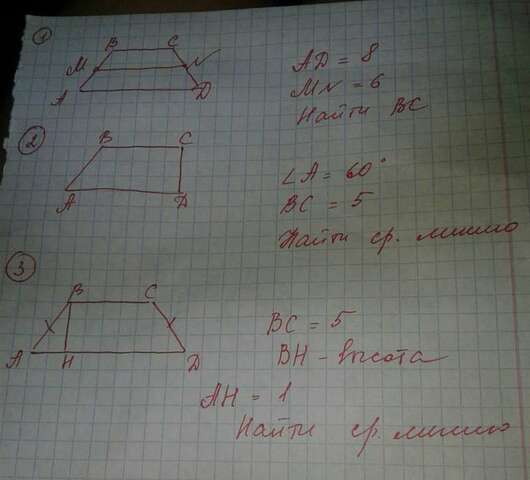 1
B C
M N
A D
AD = 8
MN = 6
Найти BC
2
B C
A D
∠A = 60°
BC = 5
Найти ср. линию
3
B C
A H D
BC = 5
BH - высота
AH = 1
Найти ср. линию